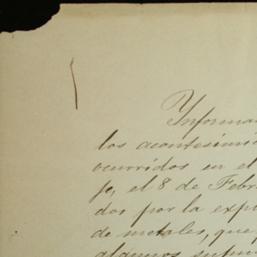 Informa
los acontesimi
ocurridos en el
jo, el 8 de Febr
dos por la exp
de metales, que
algunos